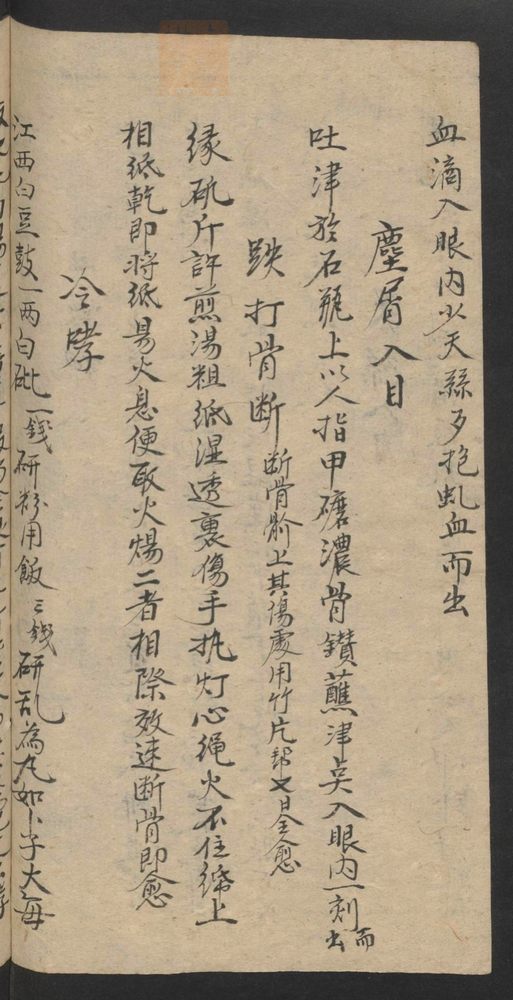 血滴入眼内少天絲夕抱虬血而出
塵屑入目
吐津於石瓶上以人指甲磨濃骨鑚蘸津㸃入眼内一刻而出
跌打骨断 断骨龂上其傷處用竹片㨍又日全愈
緑矾斤許煎湯粗紙湿透裹傷手执灯心绳火不住綿上
相紙乾即将紙易火息便取火煬二者相際效速断骨即愈
冷哮
江西白豆鼓一两白砒一錢研粉用飯三錢研乱為丸如卜子大每